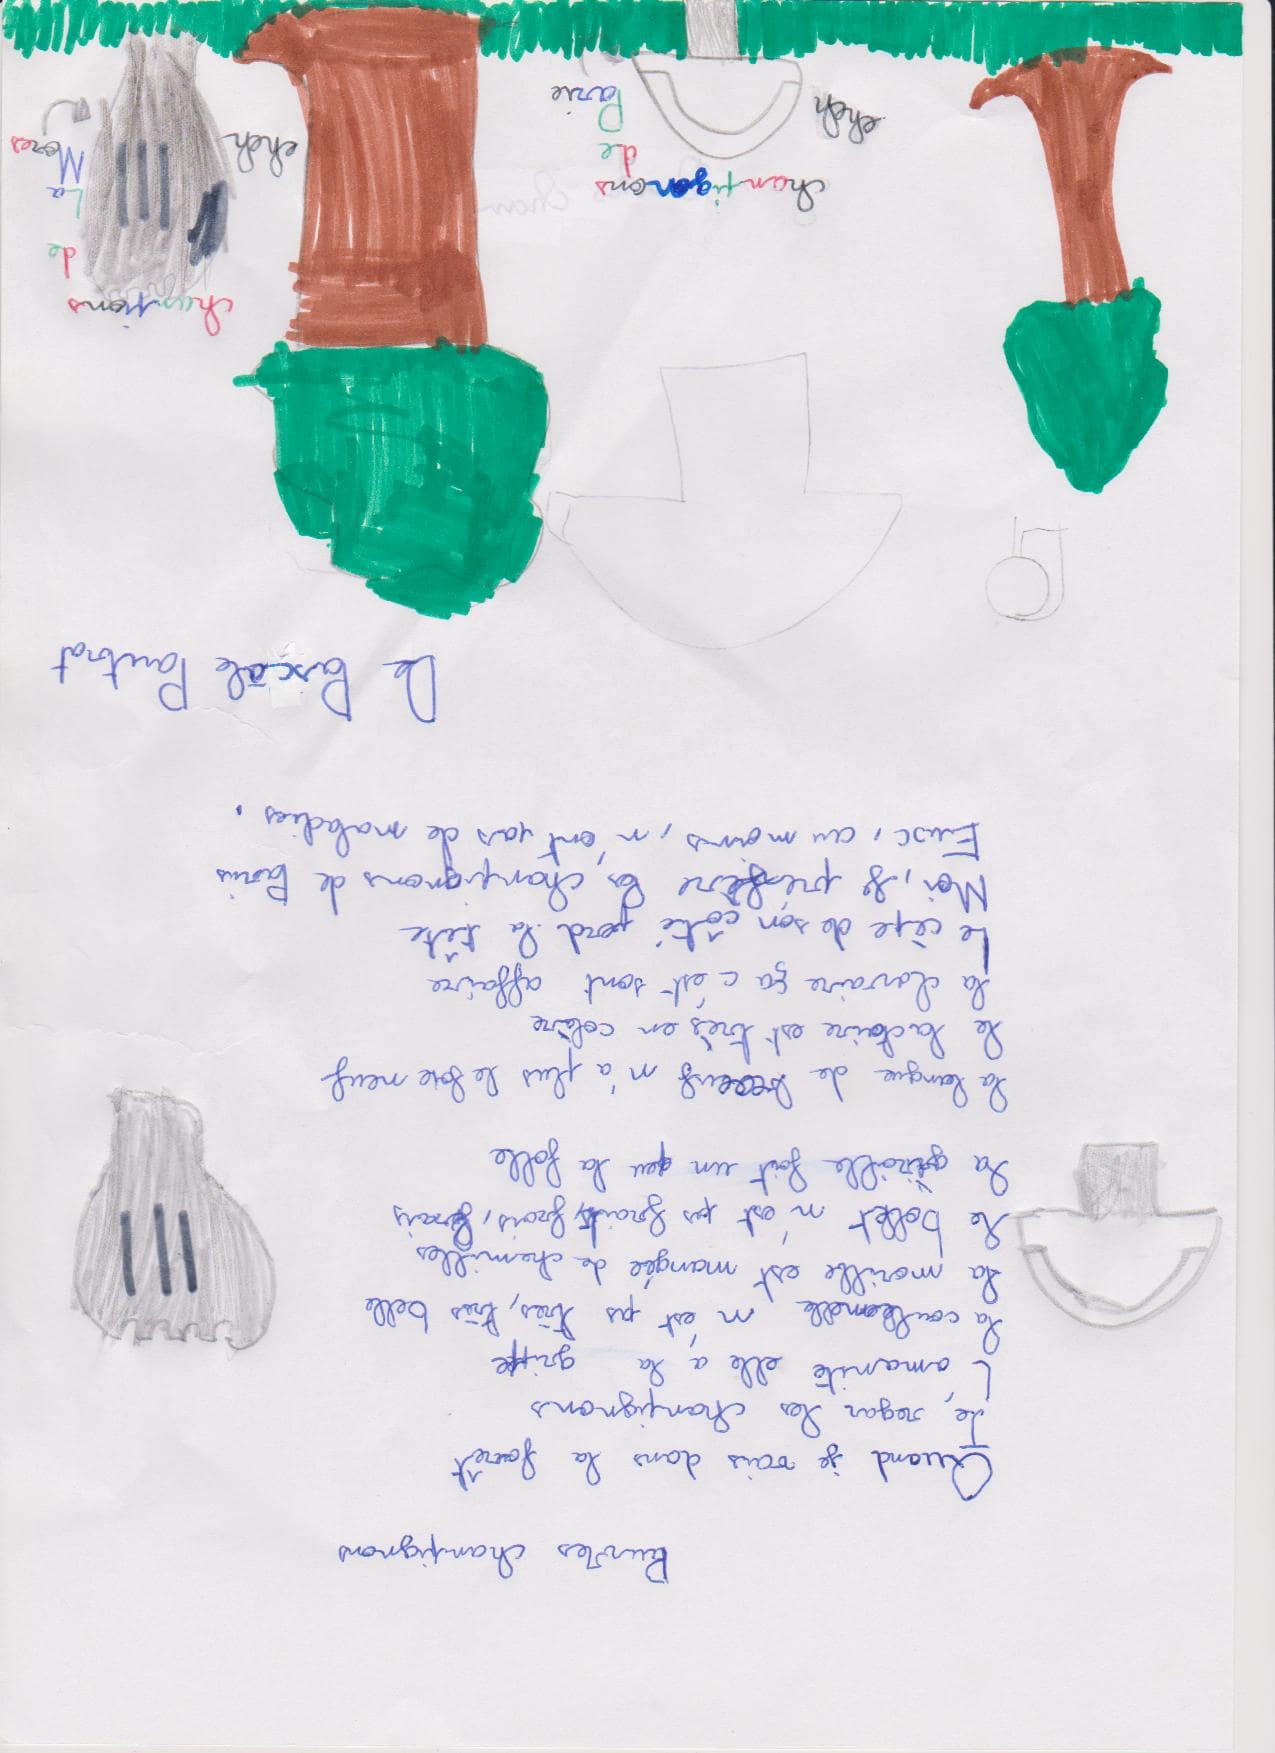 Pauvres champignons
Quand je vais dans la forêt
Je regar les champignons
L'amanite elle à la grippe
La coulemelle n'est pas très, très belle
La morille est mangée de chenilles
Le bolet n'est pas frais, frais, frais
La girolle fait un peu la folle
La langue de boeuf n'a plus le foie neuf
Le lactaire est très en colère
La clavaire ça c'est sont affaire
Le cèpe de son côté perd la tête
Moi, Je préfère les champignons de Paris
Eux, au moins, n'ont pas de maladies.
De Pascale Pautrat
champigonons
de
Parie
cheh
champions
de
La
Mores
cheh